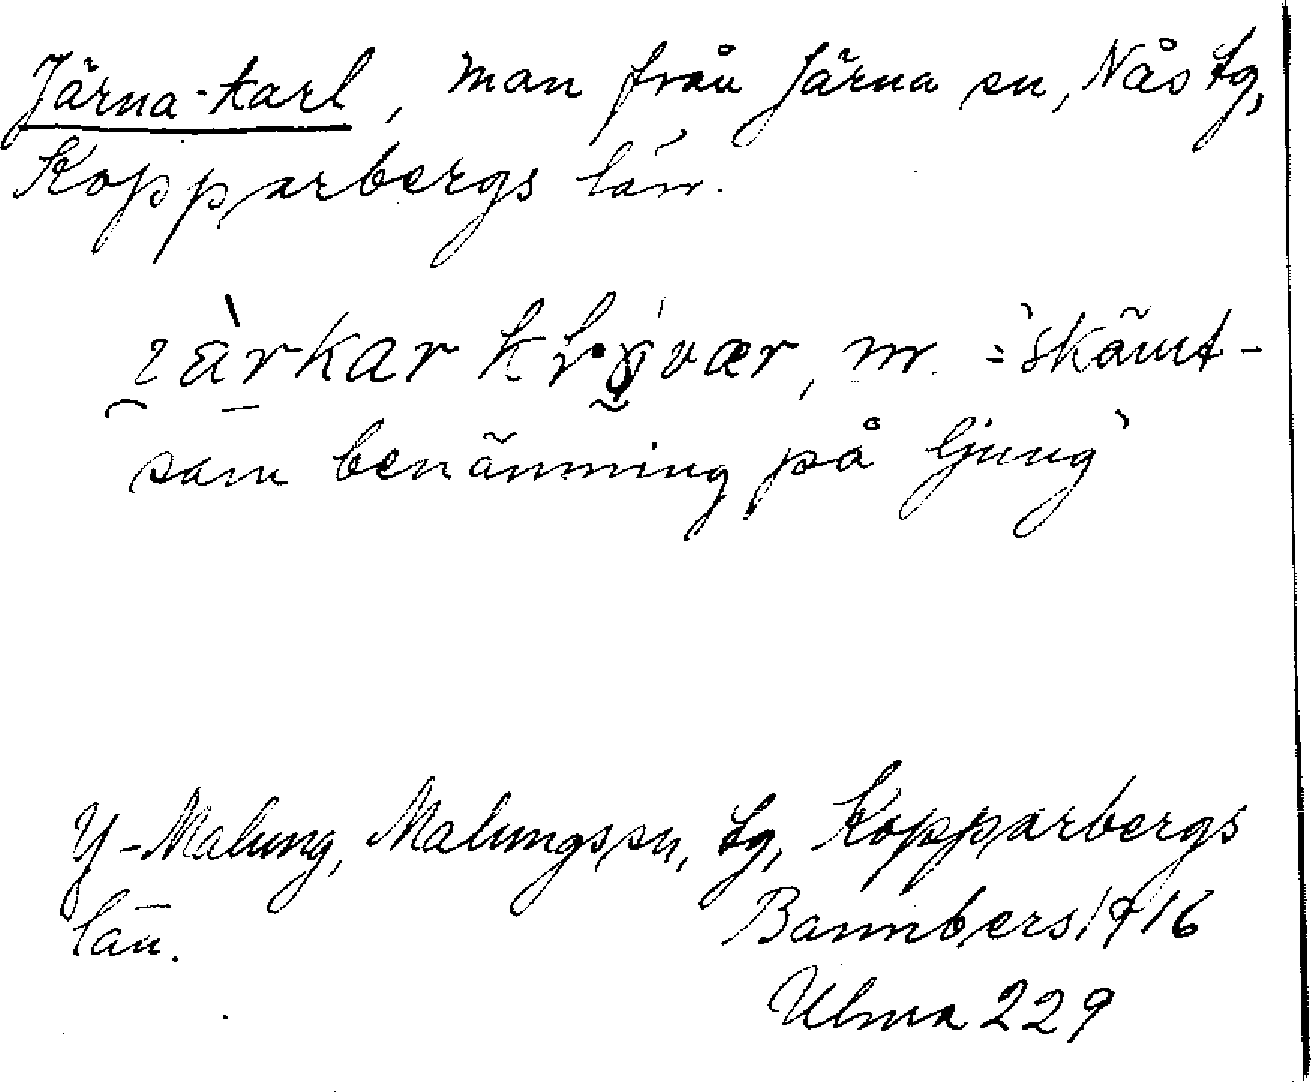 Järna-karl, man från Järna sn, Nås tg,
Kopparbergs län.
m. = 'skämt-
sam benämning på ljung'
Y-Malung, Malungs sn, tg, Kopparbergs
län. Bannbers 1916
Ulma 229